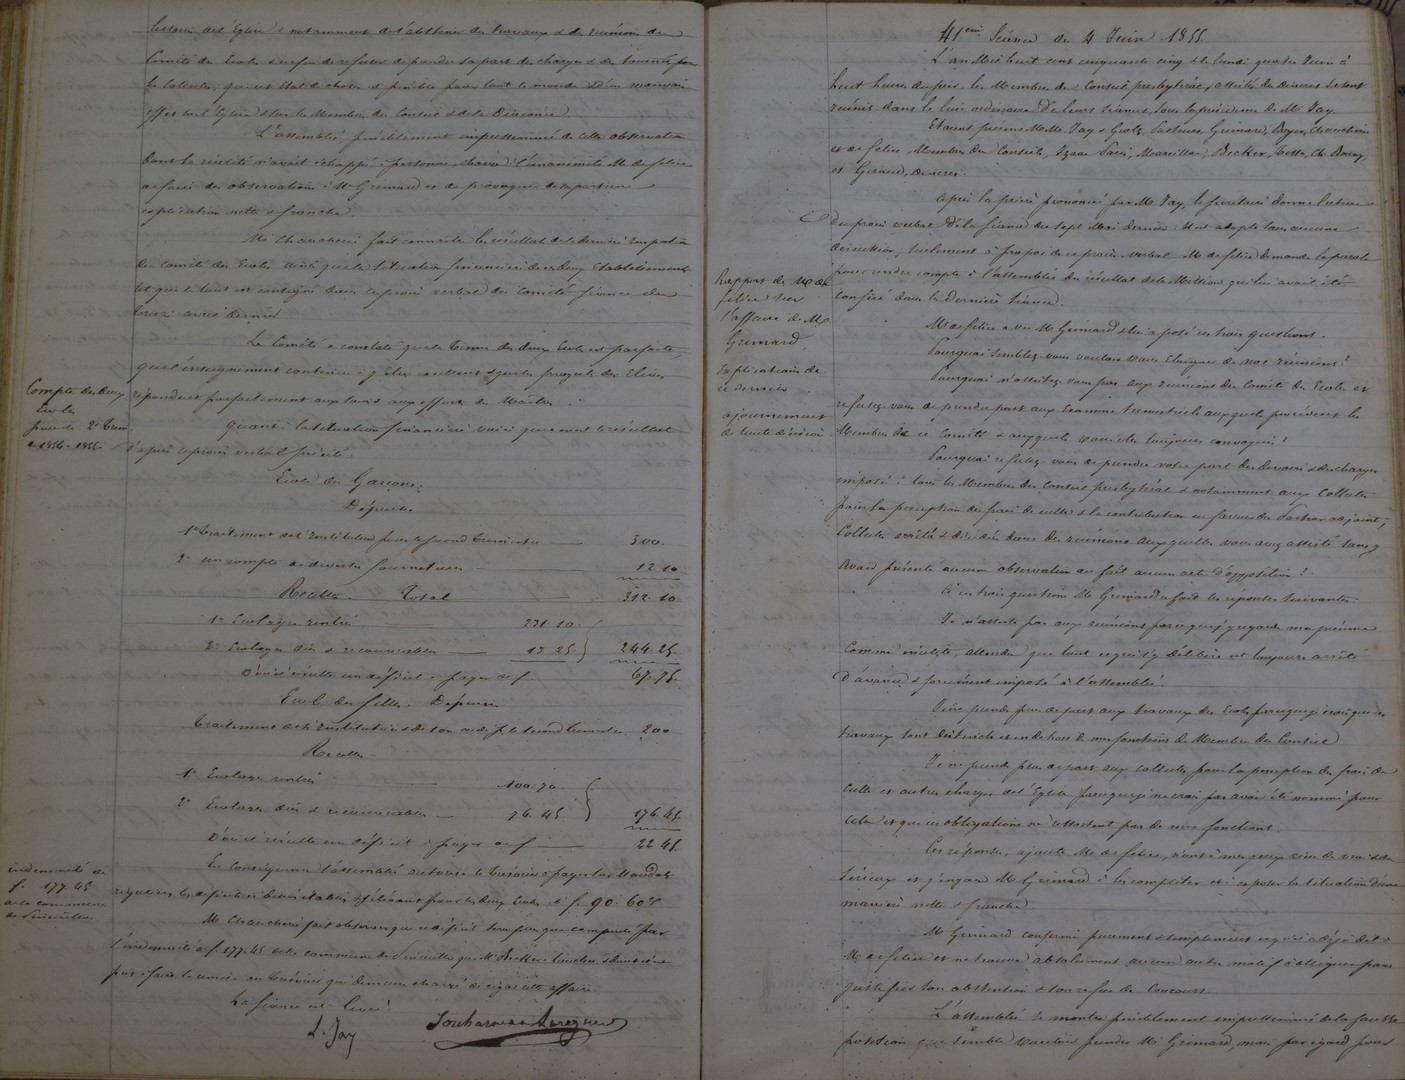 besoin de l'Eglise & notamment de s'abstenir des travaux & des réunions du
Comité des Ecoles & enfin de refuser de prendre sa part des charges & des tournées pour
les Collectes, que cet état de choses est pénible pour tout le monde & d'un mauvais
effet sur l'Eglise & sur les Membres du Conseil & de la Diaconie.
L'assemblée péniblement impressionnée de cette observation
dans la réalité n'avait échappé à personne, charge à l'unanimité M. de félice
de faire des observations à Mr Grimard et de provoquer de sa part une
explication nette & franche.
Mr Chaucherie fait connaître le résultat de la dernière inspection
du Comité des Ecoles ainsi que la situation financière de ces deux Etablissements
tel que le tout est consigné dans le procès verbal du Comité séance du
avril dernier.
Le Comité a constaté que la tenue des deux Ecoles est parfaite,
que l'enseignement continue à y être excellent & que les progrès des Elèves
répondent parfaitement aux soins & aux efforts des Maîtres.
Compte des deux
Ecoles
pour le 2e Trim.
de 1854-1855
quant à la situation financière voici quel en est le résultat
d'après ce procès verbal précité.
Ecole des Garçons.
Dépenses
1° Traitement de l'Instituteur pour le second Trimestre 300.
2° un compte de diverses fournitures 12.10
Recettes Total 312.10
1° Ecolages rentrés 231.10
2° Ecolages dûs & recouvrables 13.25 244.25
D'où il résulte un déficit à payer de f. 67.75
Ecole des filles. Dépense
Traitement de l'Institutrice & de son aide p. le second Trimestre 200
Recettes
1° Ecolages rentrés 100.70
2° Ecolages dûs & recouvrables 76.45 176.45
D'où il résulte un déficit à payer de f. 22.45
En conséquence l'assemblée autorise le trésorier à payer sur Mandats
réguliers les déficits ci-dessus établis & s'élevant pour les deux Ecoles à f. 90.60
indemnité de
f. 177.45
de la commune
M. Chaucherie fait observer que ce déficit sera plus que compensé par
l'indemnité de f. 177.45 de la commune de que Mr Becker
pas faire la remise au Trésorier qui demeure chargé de régler cette affaire.
La séance est levée
L. Jay
41eme Séance du 4 Juin 1855
L'an Mil huit cent cinquante cinq & le lundi quatre Juin à
huit heures du soir les Membres du Conseil presbytéral, assistés des Diacres se sont
réunis dans le lieu ordinaire de leurs séances, sous la présidence de Mr Jay.
Etaient présents M.M. Jay & Goetz, Pasteurs, Grimard, Boyer, Chaucherie
et de félice Membres du Conseil, Izaac Marcillac, Becker, Ch. Bourzy,
et Géraud, Diacres.
Après la prière prononcée par Mr Jay, le secrétaire donne lecture
du procès verbal de la séance du sept Mai dernier. Il est adopté sans aucune
discussion, seulement à propos de ce procès verbal M. de félice demande la parole
pour rendre compte à l'assemblée du résultat de la Mission qui lui avait été
confiée dans la dernière séance.
Rapport de M. de
félice sur
l'affaire de Mr
Grimard
Explications de
ce dernier
ajournement
de toute décision
M. de félice a vu Mr Grimard & lui a posé ces trois questions.
Pourquoi semblez-vous vouloir vous éloigner de nos réunions?
Pourquoi n'assistez-vous pas aux réunions du Comité des Ecoles et
refusez-vous de prendre part aux Examens trimestriels auxquels procèdent les
Membres de ce Comité & auxquels vous êtes toujours convoqué?
Pourquoi refusez-vous de prendre votre part des devoirs & des charges
imposés à tous les Membres du Conseil presbytéral & notamment aux Collectes
pour la perception des frais de culte & la contribution en faveur du Pasteur adjoint,
Collectes arrêtés & décidés dans des réunions auxquelles vous avez assisté sans y
avoir présenté aucune observation ou fait aucun acte d'opposition?
à ces trois questions Mr Grimard a fait les réponses suivantes.
Je n'assiste pas aux réunions parceque j'y regarde ma présence
comme inutile, attendu que tout ce qui s'y délibère est toujours arrêté
d'avance & forcément imposé à l'assemblée.
Je ne prends pas de part aux travaux des Ecoles parceque je crois que ces
travaux sont distincts et en dehors de mes fonctions de Membre du Conseil
Je ne prends pas de part aux collectes pour la perception des frais de
culte et autres charges de l'Eglise parceque je ne crois pas avoir été nommé pour
cela et que ces obligations ne ressortent pas de mes fonctions.
Ces réponses, ajoute Mr de félice, n'ont à mes yeux rien de vrai & de
sérieux et j'engage Mr Grimard à les compléter et à exposer la situation d'une
manière nette & franche.
Mr Grimard confirme purement & simplement ce qu'il a déjà dit à
M. de félice et ne trouve absolument aucun autre motif à alléguer pour
justifier son abstention & son refus de concours.
L'assemblée se montre péniblement impressionnée de la fausse
position que semble vouloir prendre Mr Grimard, mais par égard pour